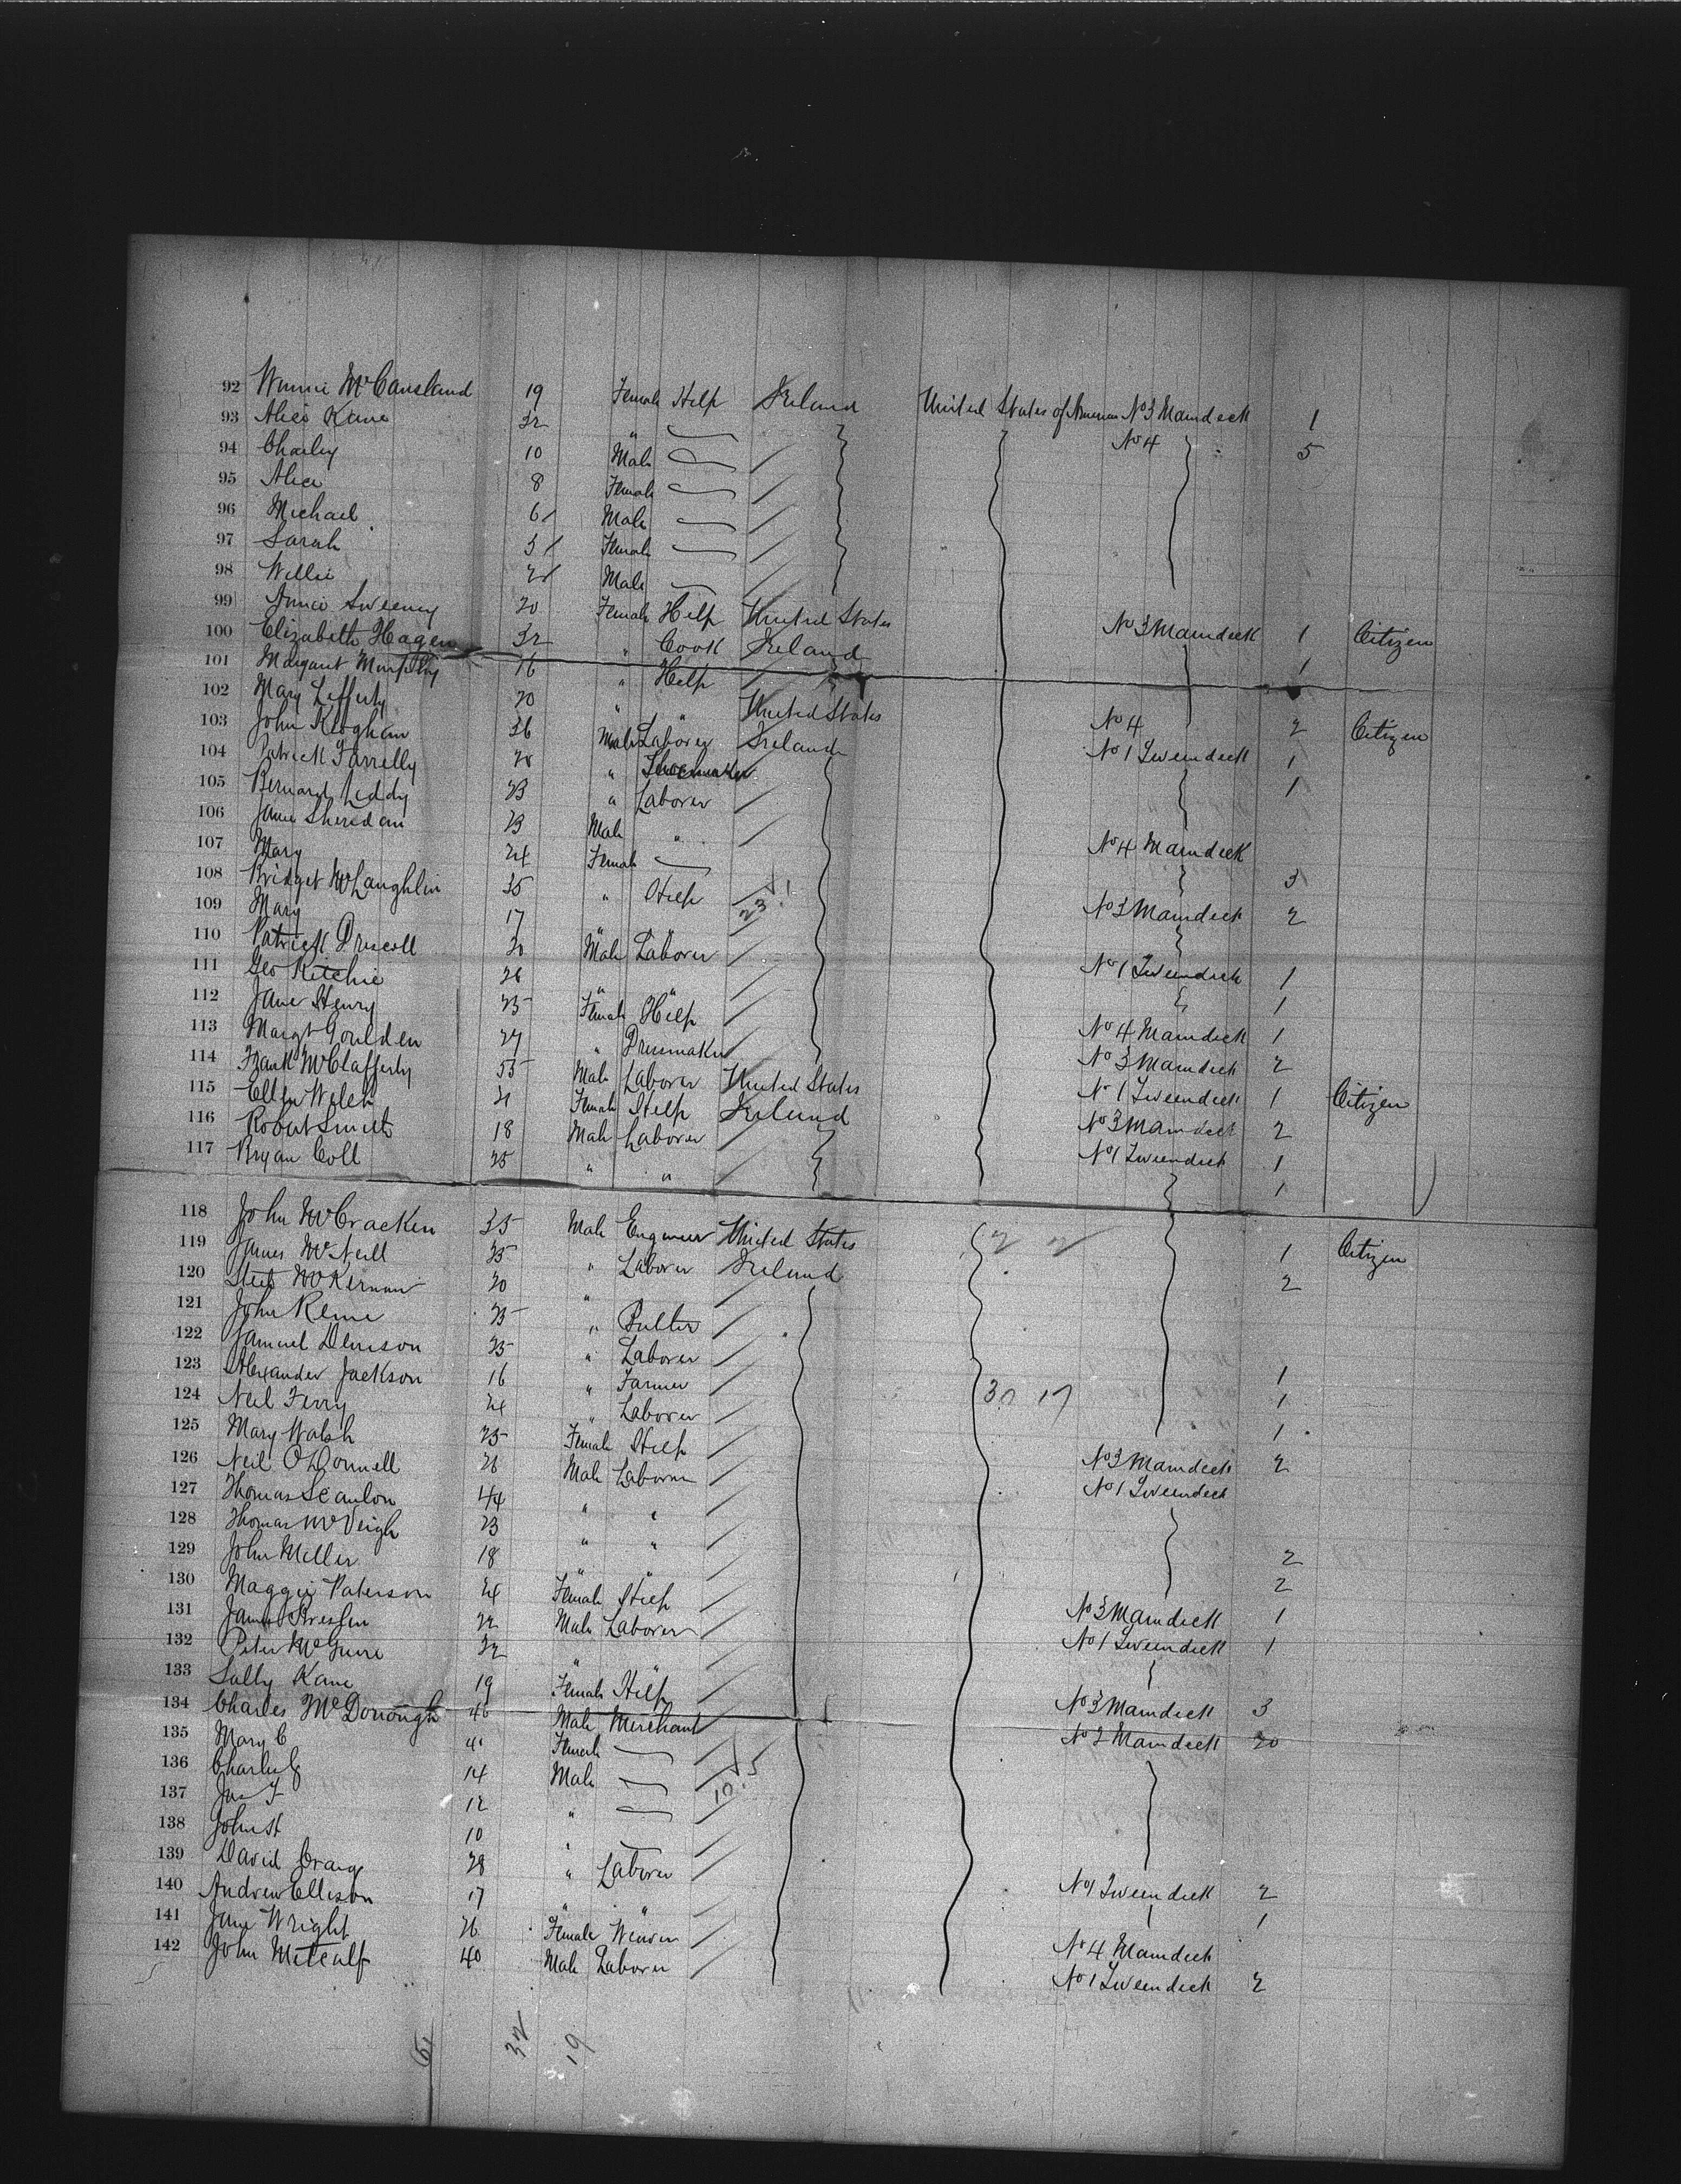 92 Winnie McCausland 19 Female Help Ireland United States of America No 3 Maindeck 1
93 Alice Kane 32 " No 4 5
94 Charley 10 Male
95 Alice 8 Female
96 Michael 6 Male
97 Sarah 3 Female
98 Willie 2 Male
99 Annie Sweeney 20 Female Help United States No 3 Maindeck 1 Citizen
100 Elizabeth Hagen 32 " Cook Ireland 1
101 Margaret Murphy 16 " Help
102 Mary Lefferty 20 " " United States No 4 2 Citizen
103 John Keoghan 36 Male Laborer Ireland No 1 Tweendeck 1
104 Patrick Farrelly " Shoemaker 1
105 Bernard Liddy 23 " Laborer
106 Sheridan 23 Male " No 4 Maindeck
107 Mary 24 Female 3
108 Bridget McLaughlin 35 " Help No 3 Maindeck 2
109 Mary 17 " "
110 Patrick Driscoll 20 Male Laborer No 1 Tweendeck 1
111 Geo Ritchie 26 " " 1
112 Jane Henry 25 Female Help No 4 Maindeck 1
113 Margt Goulden 27 " Dressmaker No 3 Maindeck 2
114 Frank McClafferty 55 Male Laborer United States No 1 Tweendeck 1 Citizen
115 Ellen Welch 21 Female Help Ireland No 3 Maindeck 2
116 Robert Smith 18 Male Laborer No 1 Tweendeck 1
117 Bryan Coll 25 " " 1
118 John McCracken 35 Male Engineer United States 1 Citizen
119 James McNeill 25 " Laborer Ireland 2
120 McKernan 20 "
121 John 25 " Butler
122 Samuel Denison 25 " Laborer 1
123 Alexander Jackson 16 " Farmer 1
124 Neil Ferry 24 " Laborer 1
125 Mary Walsh 25 Female Help No 3 Maindeck 2
126 Neil O'Donnell 26 Male Laborer No 1 Tweendeck
127 Thomas Scanlon 44 " "
128 Thomas McVeigh 23 " " 2
129 John Miller 18 " " 2
130 Maggie Paterson 24 Female Help No 3 Maindeck 1
131 James Breslin 22 Male Laborer No 1 Tweendeck 1
132 Peter McGuire 32 " "
133 Sally Kane 19 Female Help No 3 Maindeck 3
134 Charles McDonough 46 Male Merchant No 2 Maindeck 20
135 Mary C 41 Female
136 Charles 14 Male
137 Jas F 12 "
138 John 10 "
139 David Orange 28 " Laborer No 1 Tweendeck 2
140 Andrew Ellison 17 " " 1
141 Jane Wright 26 Female Weaver No 4 Maindeck
142 John Metcalf 40 Male Laborer No 1 Tweendeck 2
32 19